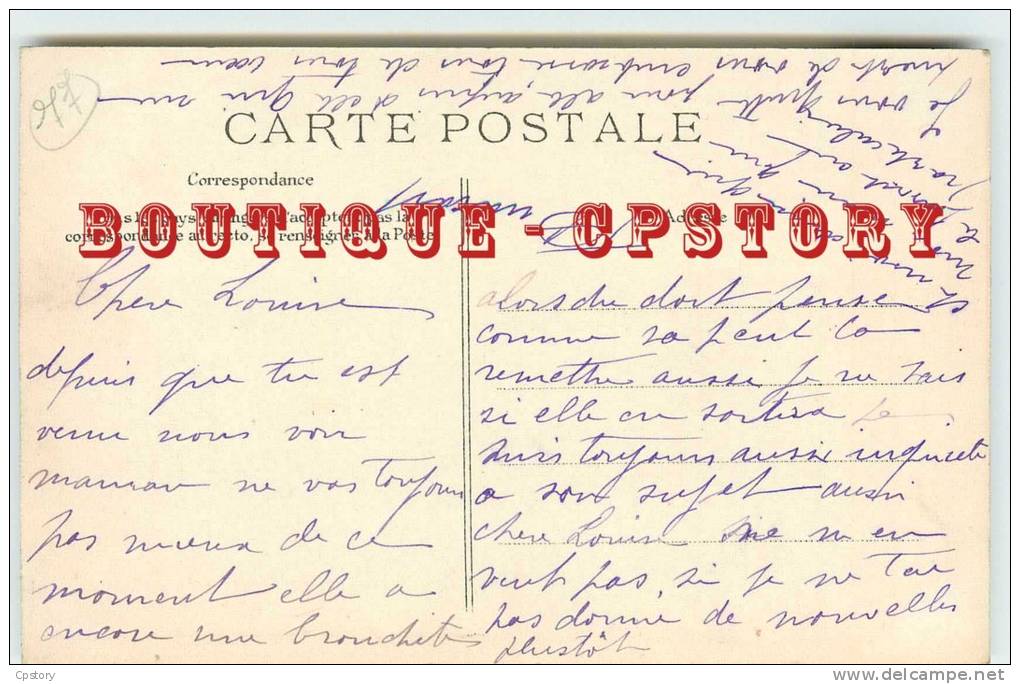 CARTE POSTALE
Correspondance
BOUTIQUE - CPSTORY
correspondance au recto, se renseigner à la Poste
Chere Louise
depuis que tu est
venu nous voir
maman ne vas toujours
pas mieux de ce
moment elle a
encore une bronchite
alors du doit pense
comme sa peut la
remettre aussi je ne sais
si elle en sortira je
suis toujours aussi inquiete
a son sujet aussi
chere Louise ne m en
veut pas si je ne tai
pas donne de nouvelles
plustôt
Je vous quitte pour allé aupres d elle qui me
de vous embrasse tous de tous cœur
Cpstory
delcampe.net